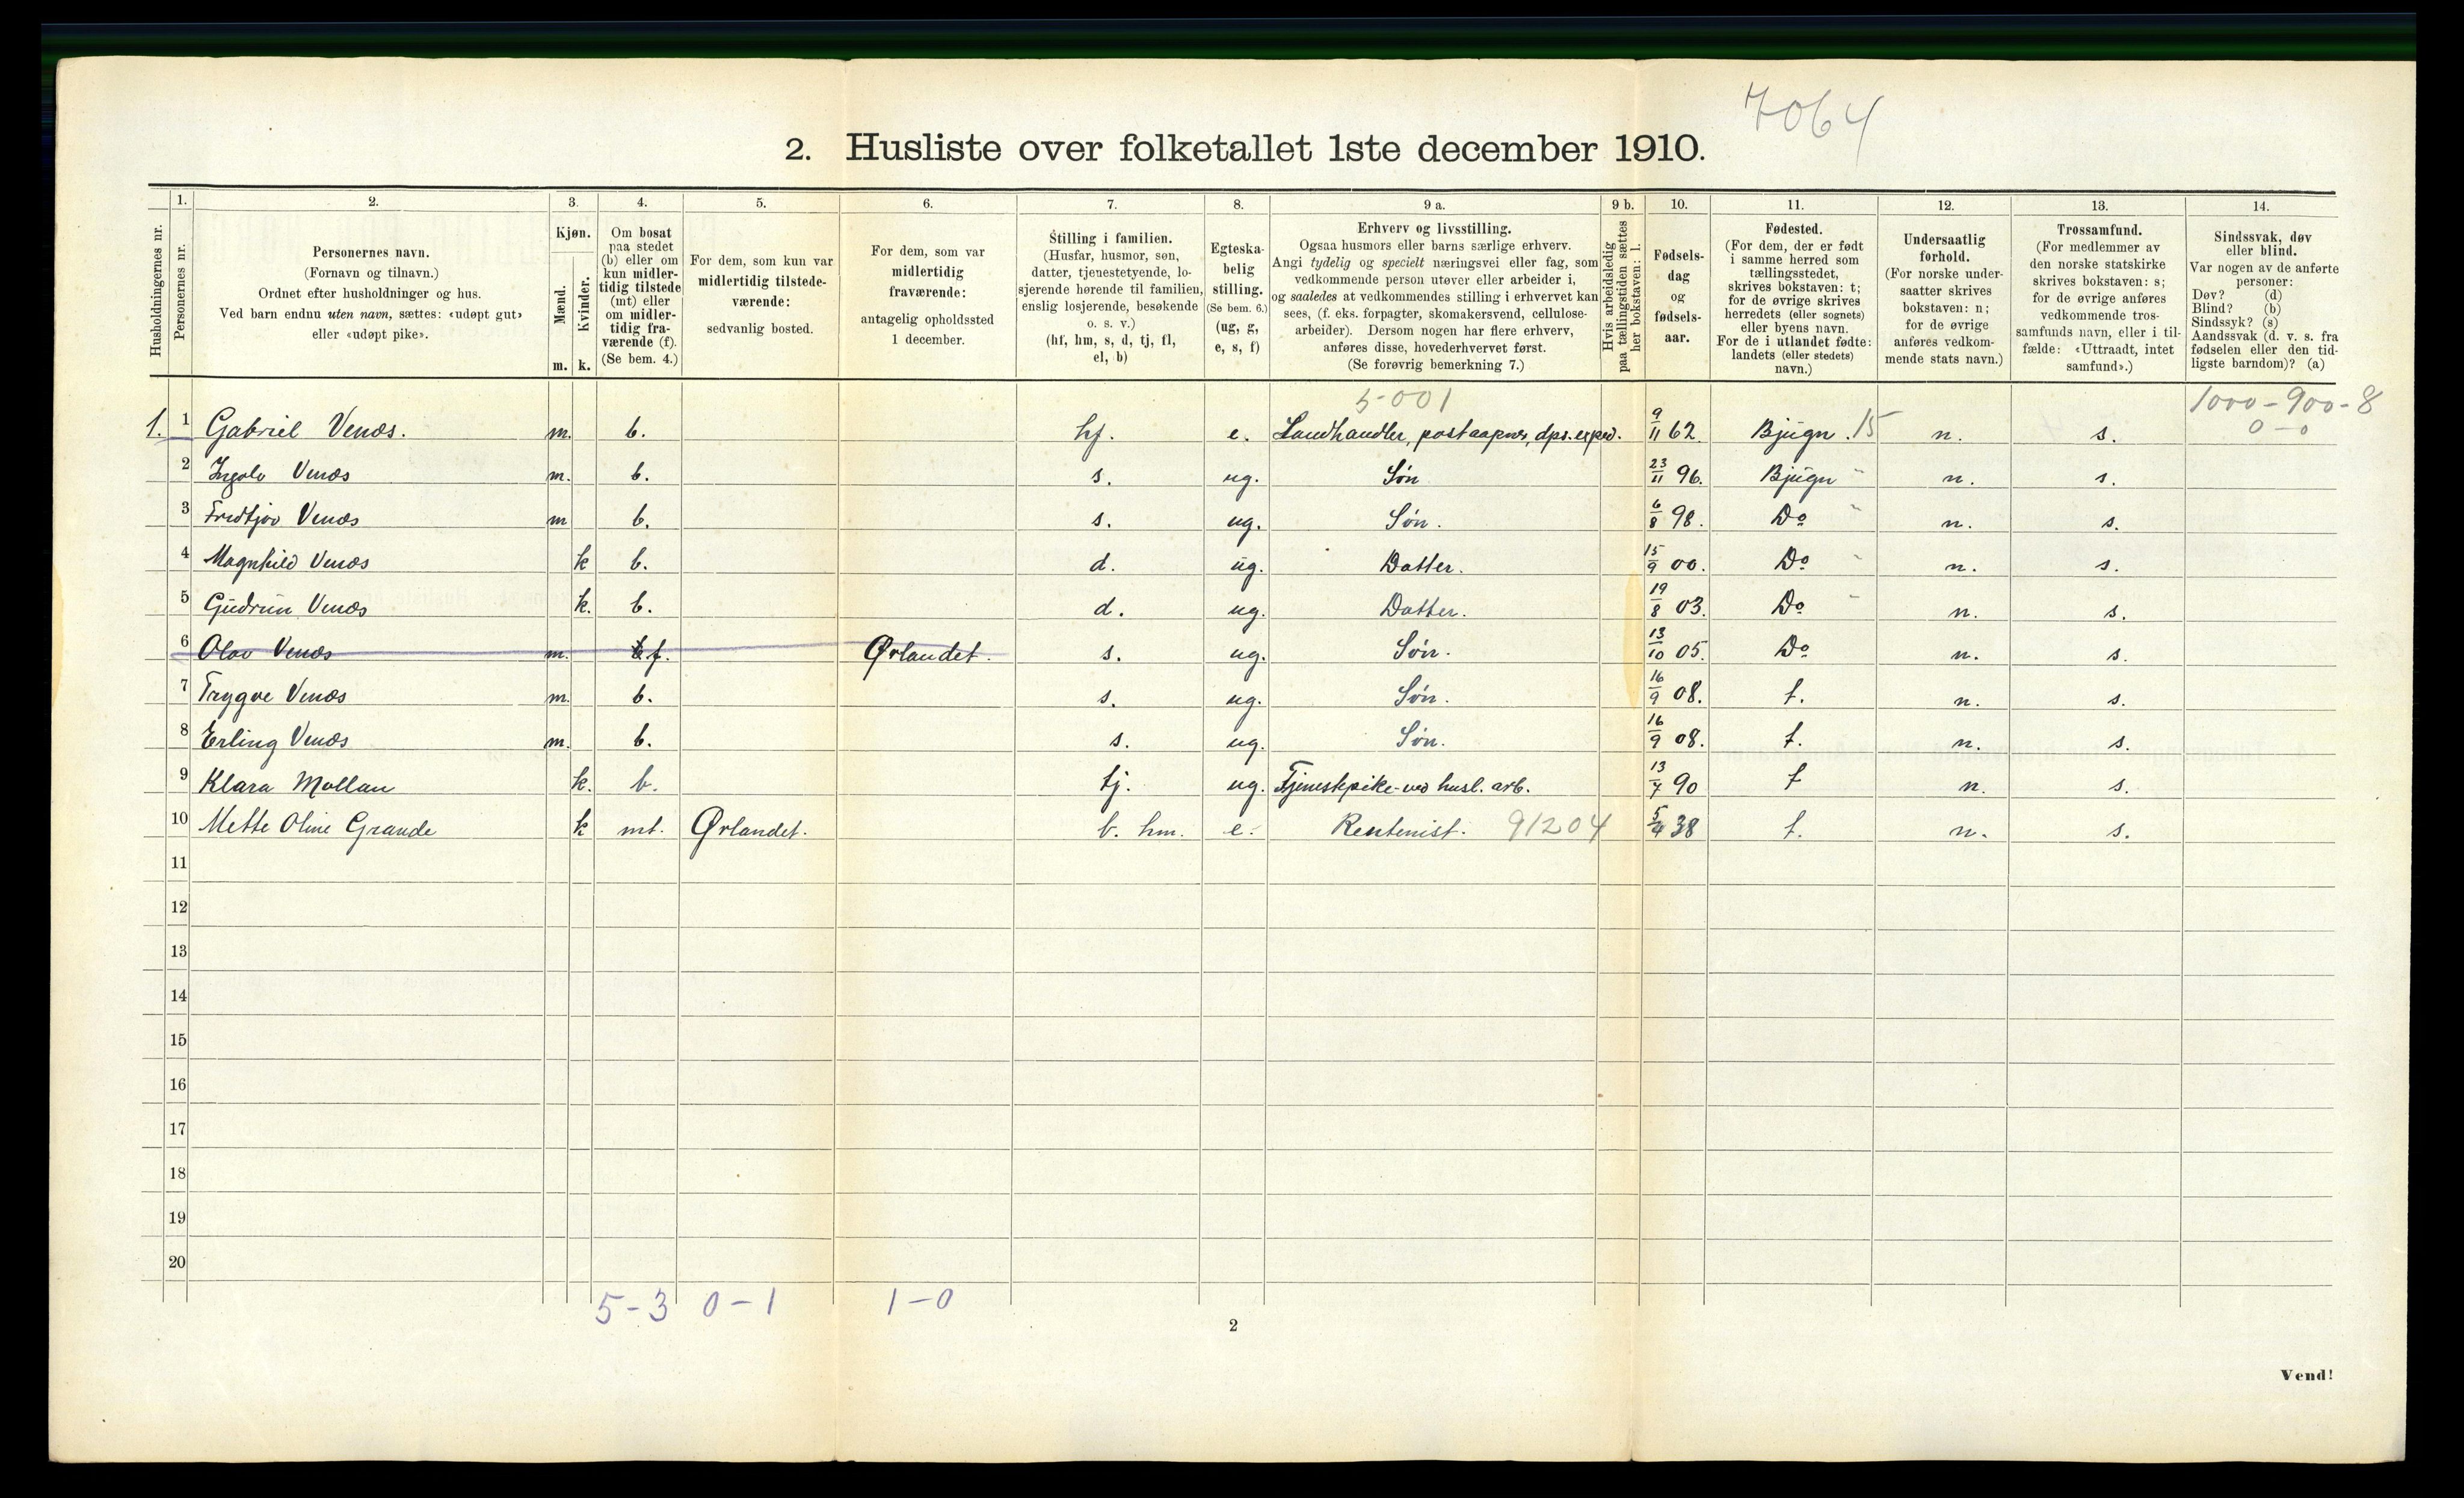 7064
2. Husliste over folketallet 1ste december 1910.
Husholdningernes nr.
1.
Personernes nr.
2.
Personernes navn.
(Fornavn og tilnavn.)
Ordnet efter husholdninger og hus.
Ved barn endnu uten navn, sættes: «udøpt gut»
eller «udøpt pike».
3.
Kjøn.
Mænd.
Kvinder.
m. k.
4.
Om bosat
paa stedet
(b) eller om
kun midler-
tidig tilstede
(mt) eller
om midler-
tidig fra-
værende (f).
(Se bem. 4.)
5.
For dem, som kun var
midlertidig tilstede-
værende:
sedvanlig bosted.
6.
For dem, som var
midlertidig
fraværende:
antagelig opholdssted
1 december.
7.
Stilling i familien.
(Husfar, husmor, søn,
datter, tjenestetyende, lo-
sjerende hørende til familien,
enslig losjerende, besøkende
o. s. v.)
(hf, hm, s, d, tj, fl,
el, b)
8.
Egteska-
belig
stilling.
(Se bem. 6.)
(ug, g,
e, s, f)
9 a.
Erhverv og livsstilling.
Ogsaa husmors eller barns særlige erhverv.
Angi tydelig og specielt næringsvei eller fag, som
vedkommende person utøver eller arbeider i,
og saaledes at vedkommendes stilling i erhvervet kan
sees, (f. eks. forpagter, skomakersvend, cellulose-
arbeider). Dersom nogen har flere erhverv,
anføres disse, hovederhvervet først.
(Se forøvrig bemerkning 7.)
9 b.
Hvis arbeidsledig
paa tællingstiden sættes
her bokstaven: l.
10.
Fødsels-
dag
og
fødsels-
aar.
11.
Fødested.
(For dem, der er født
i samme herred som
tællingsstedet,
skrives bokstaven: t;
for de øvrige skrives
herredets (eller sognets)
eller byens navn.
For de i utlandet fødte:
landets (eller stedets)
navn.)
12.
Undersaatlig
forhold.
(For norske under-
saatter skrives
bokstaven: n;
for de øvrige
anføres vedkom-
mende stats navn.)
13.
Trossamfund.
(For medlemmer av
den norske statskirke
skrives bokstaven: s;
for de øvrige anføres
vedkommende tros-
samfunds navn, eller i til-
fælde: «Uttraadt, intet
samfund».)
14.
Sindssvak, døv
eller blind.
Var nogen av de anførte
personer:
Døv? (d)
Blind? (b)
Sindssyk? (s)
Aandssvak (d. v. s. fra
fødselen eller den tid-
ligste barndom)? (a)
5-001 1000-900-8
1. 1 Gabriel Venæs. m. b. hf. e. Landhandler, postaapner, dps. exped. 9/11 62. Bjugn. 15 n. s. 0-0
2 Ingolv Venæs m. b. s. ug. Søn 23/11 96. Bjugn n. s.
3 Fredtjov Venæs m b. s. ug. Søn. 6/8 98. Do n. s.
4 Magnhild Venæs k b. d. ug. Datter. 15/9 00. Do n. s.
5 Gudrun Venæs k. b. d. ug. Datter. 19/8 03. Do n. s.
6 Olav Venæs m. f. Ørlandet. s. ug. Søn. 13/10 05. Do n. s.
7 Trygve Venæs m. b. s. ug. Søn. 16/9 08. t. n. s.
8 Erling Venæs m. b. s. ug. Søn. 16/9 08. t. n. s.
9 Klara Mollan k. b. tj. ug. Tjenestpike-ved husl. arb. 13/7 90 t n. s.
10 Mette Oline Grande k mt. Ørlandet. b. hm. e. Rentenist. 91204 5/4 38 t. n. s.
11
12
13
14
15
16
17
18
19
20
5-3 0-1 1-0
2
Vend!